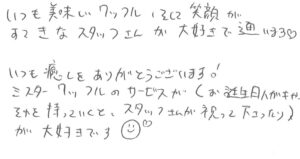 いつも美味しいワッフル そして笑顔が
すてきなスタッフさんが大好きで通います♡
いつも癒しをありがとうございます!
ミスターワッフルのサービスが(お誕生日人がキャ
それを持っていくと、スタッフさんが祝って下さったり)
が大好きです☺♡